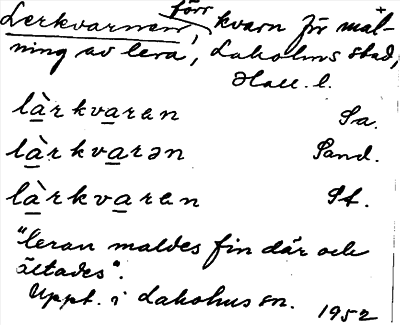 Lerkvarnen, förr kvarn för mal-
ning av lera, Laholms stad,
Hall. l.
làrkvaren Sa.
làrkvarən Sand.
làrkvaren St.
"leran maldes fin där och
ältades".
Uppt. i Laholms sn. 1952